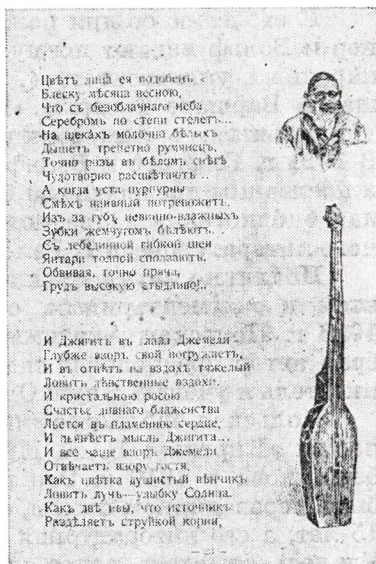 Цвѣтъ лица ея подобенъ
Блеску мѣсяца весною,
Что съ безоблачнаго неба
Серебромъ по степи стелетъ...
На щекахъ молочно бѣлыхъ
Дышетъ трепетно румянецъ,
Точно розы въ бѣломъ снѣгѣ
Чудотворно расцвѣтаютъ...
А когда уста пурпурны
Смѣхъ наивный потревожитъ,
Изъ за губъ невинно-влажныхъ
Зубки жемчугомъ бѣлѣютъ.
Съ лебединной гибкой шеи
Янтари толпой сползаютъ.
Обвивая, точно пряча,
Грудь высокую стыдливо!..
И Джигитъ въ глаза Джемели
Глубже взоръ свой погружаетъ,
И въ отвѣтъ на вздохъ тяжелый
Ловитъ дѣвственные вздохи.
И кристальною росою
Счастье дивнаго блаженства
Льется въ пламенное сердце,
И пьянѣетъ мысль Джигита...
И все чаще взоръ Джемели
Отвѣчаетъ взору гостя,
Какъ цвѣтка душистый вѣнчикъ
Ловитъ лучъ—улыбку Солнца.
Какъ двѣ ивы, что источникъ
Раздѣляетъ струйкой корни,